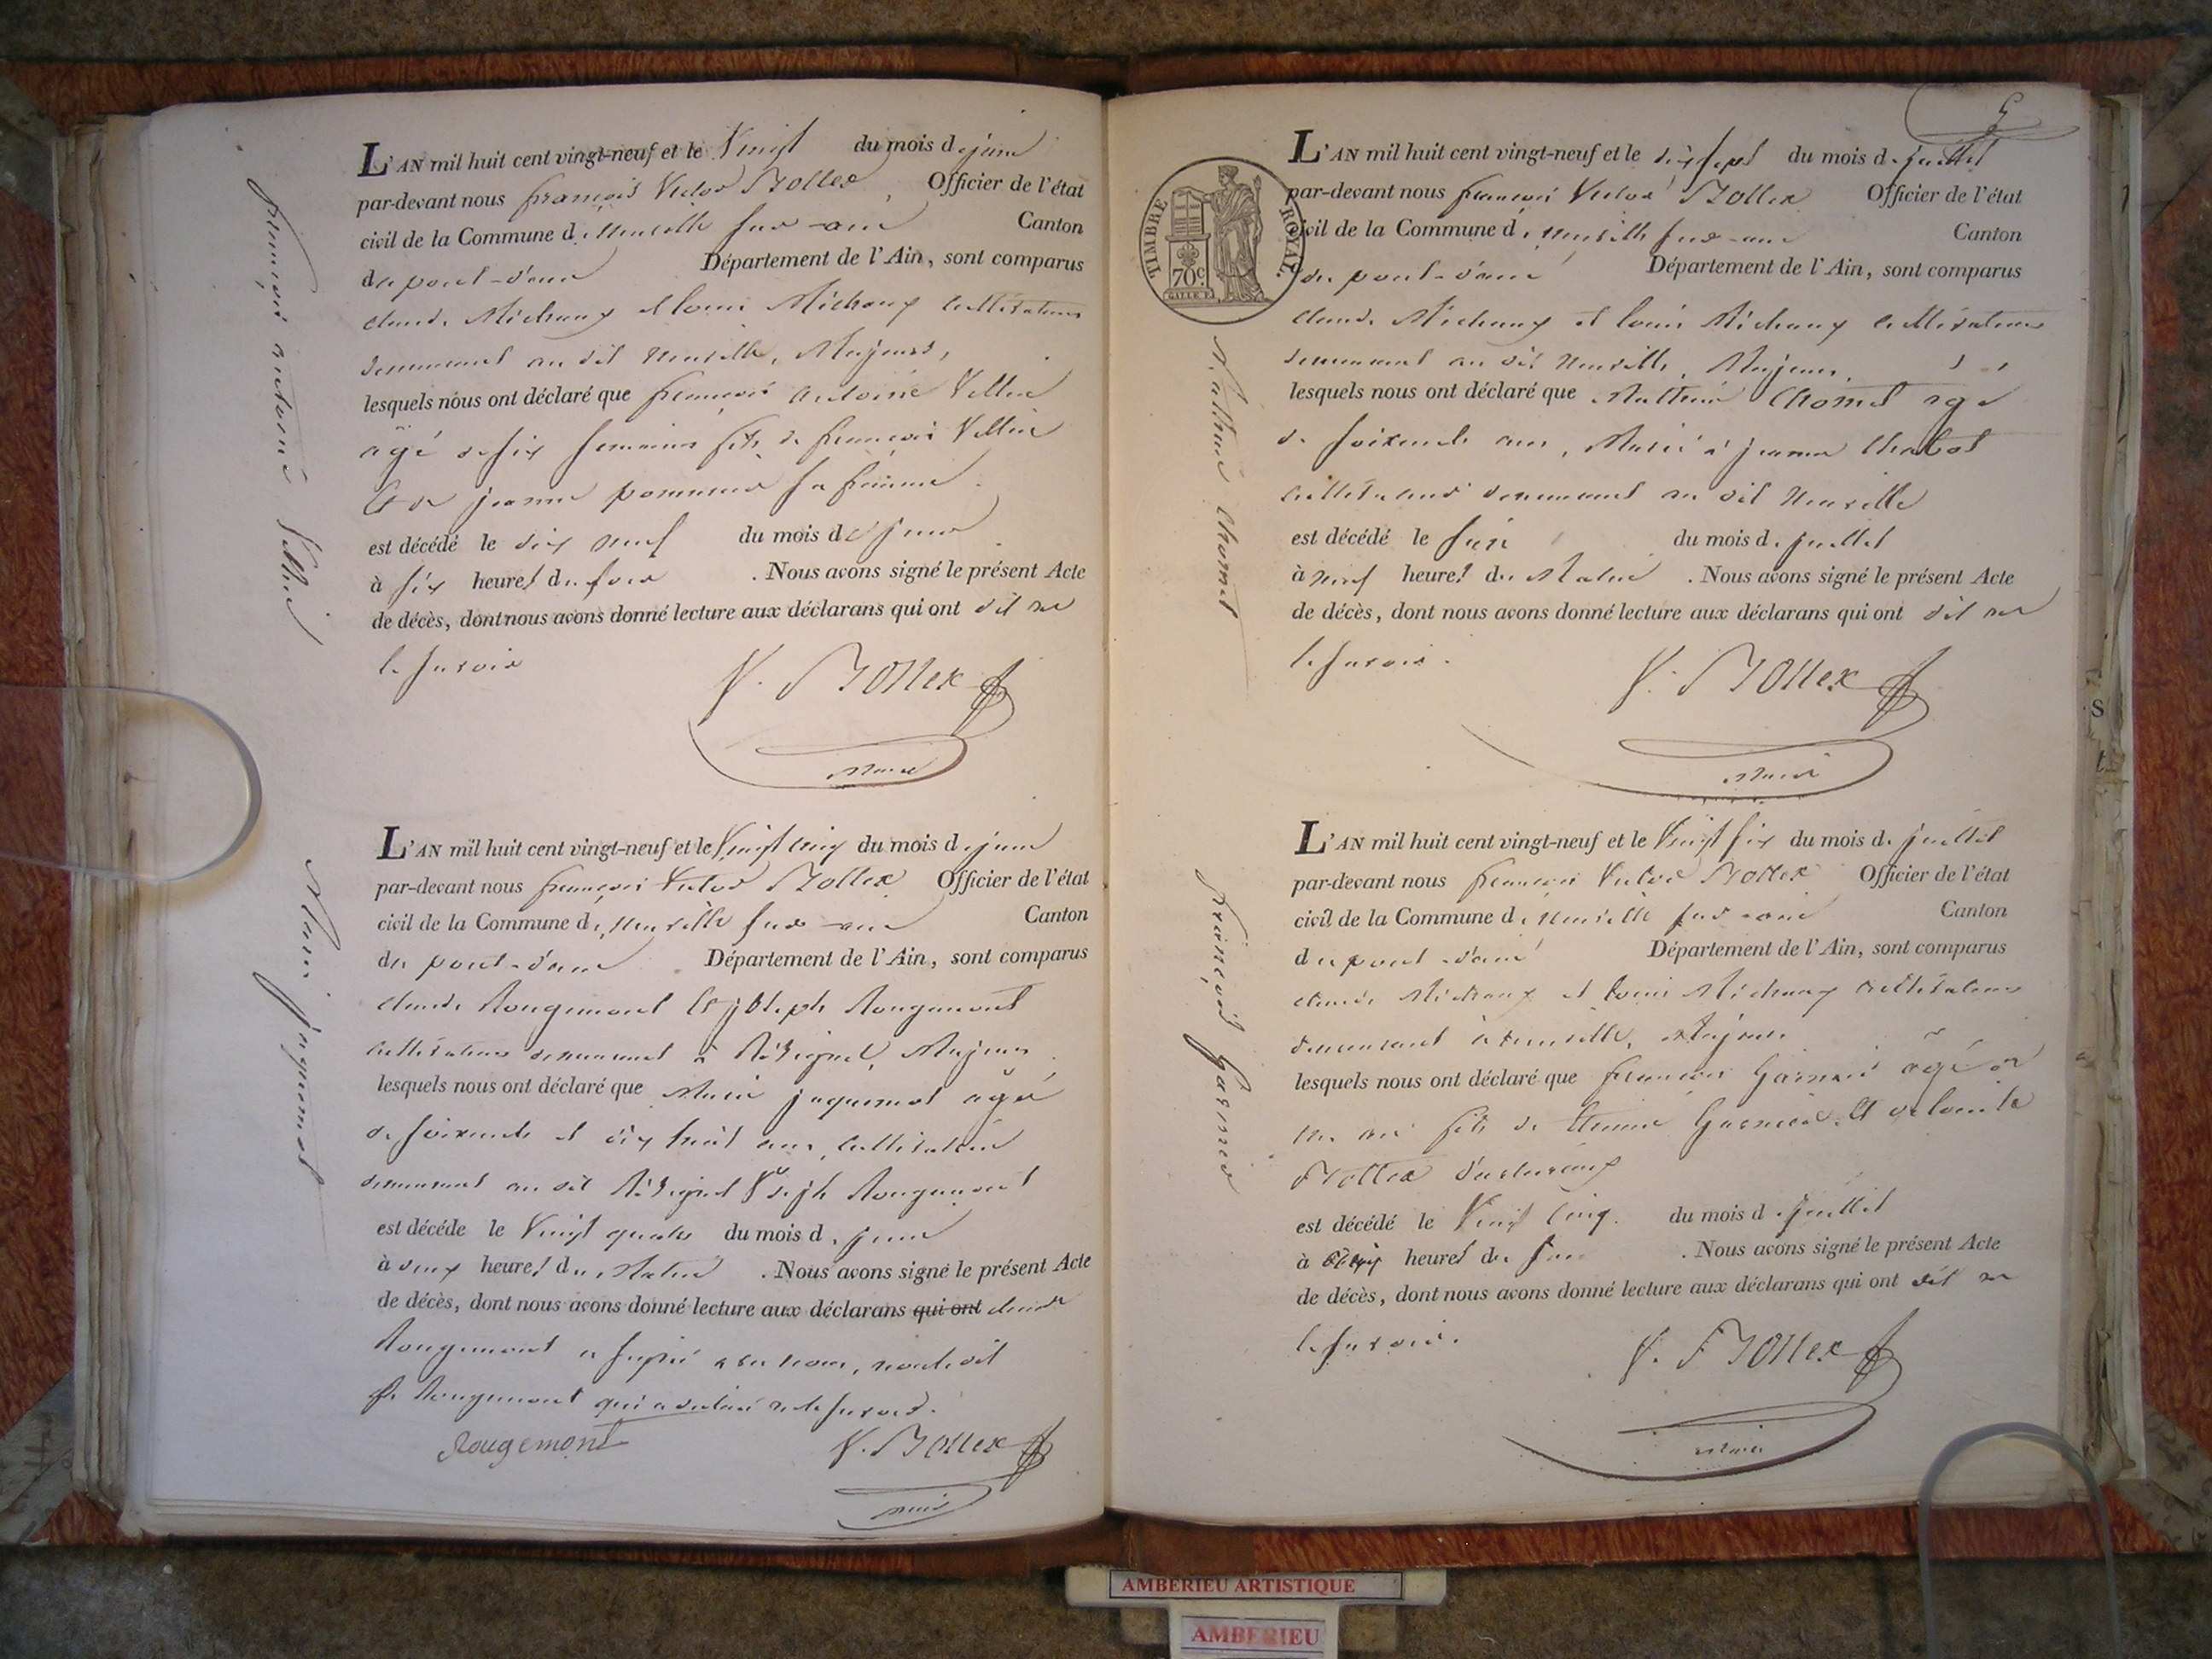 L'AN mil huit cent vingt-neuf et le Vingt du mois de juin
par-devant nous françois Victor Bollex Officier de l'état
civil de la Commune de Neuville sur-ain Canton
de pont-d'ain Département de l'Ain, sont comparus
claude Michaux et louis Michaux cultivateurs
demeurant au dit Neuville, Majeurs,
lesquels nous ont déclaré que françois antoine
âgé de six semaines fils de françois
et de jeanne sa femme
est décédé le dix neuf du mois de juin
à six heures du soir . Nous avons signé le présent Acte
de décès, dont nous avons donné lecture aux déclarans qui ont dit ne
le savoir
V. Bollex
Maire
françois antoine
L'AN mil huit cent vingt-neuf et le Vingt cinq du mois de juin
par-devant nous françois Victor Bollex Officier de l'état
civil de la Commune de Neuville sur-ain Canton
de pont-d'ain Département de l'Ain, sont comparus
claude Rougemont et joseph Rougemont
cultivateurs demeurant à Résignel, Majeurs
lesquels nous ont déclaré que Marie jaquemet âgée
de soixante et dix huit ans, cultivatrice
demeurant au dit Résignel Ve de jh Rougemont
est décédé le Vingt quatre du mois de juin
à deux heures du Matin . Nous avons signé le présent Acte
de décès, dont nous avons donné lecture aux déclarans qui ont claude
Rougemont a signé avec nous, non le dit
jh Rougemont qui a déclaré ne le savoir.
Rougemont V. Bollex
Maire
Marie jaquemet
5
L'AN mil huit cent vingt-neuf et le dix sept du mois de juillet
par-devant nous françois Victor Bollex Officier de l'état
civil de la Commune de Neuville sur-ain Canton
de pont-d'ain Département de l'Ain, sont comparus
claude Michaux et louis Michaux cultivateurs
demeurant au dit Neuville, Majeurs.
lesquels nous ont déclaré que Mathieu Chomel âgé
de soixante ans, Marié à jeanne Chabot
cultivateur demeurant au dit Neuville
est décédé le seize du mois de juillet
à neuf heures du Matin . Nous avons signé le présent Acte
de décès, dont nous avons donné lecture aux déclarans qui ont dit ne
le savoir.
V. Bollex
Maire
TIMBRE ROYAL.
70c.
Mathieu Chomel
L'AN mil huit cent vingt-neuf et le Vingt six du mois de juillet
par-devant nous françois Victor Bollex Officier de l'état
civil de la Commune de Neuville sur-ain Canton
de pont-d'ain Département de l'Ain, sont comparus
claude Michaux et louis Michaux cultivateurs
demeurant à Neuville, Majeurs
lesquels nous ont déclaré que françois Garnier âgé de
un an fils de Etienne Garnier et de louise
Bollex
est décédé le Vingt cinq. du mois de juillet
à heures du soir . Nous avons signé le présent Acte
de décès, dont nous avons donné lecture aux déclarans qui ont dit ne
le savoir.
V. Bollex
Maire
françois Garnier
S
t
AMBERIEU ARTISTIQUE
AMBERIEU